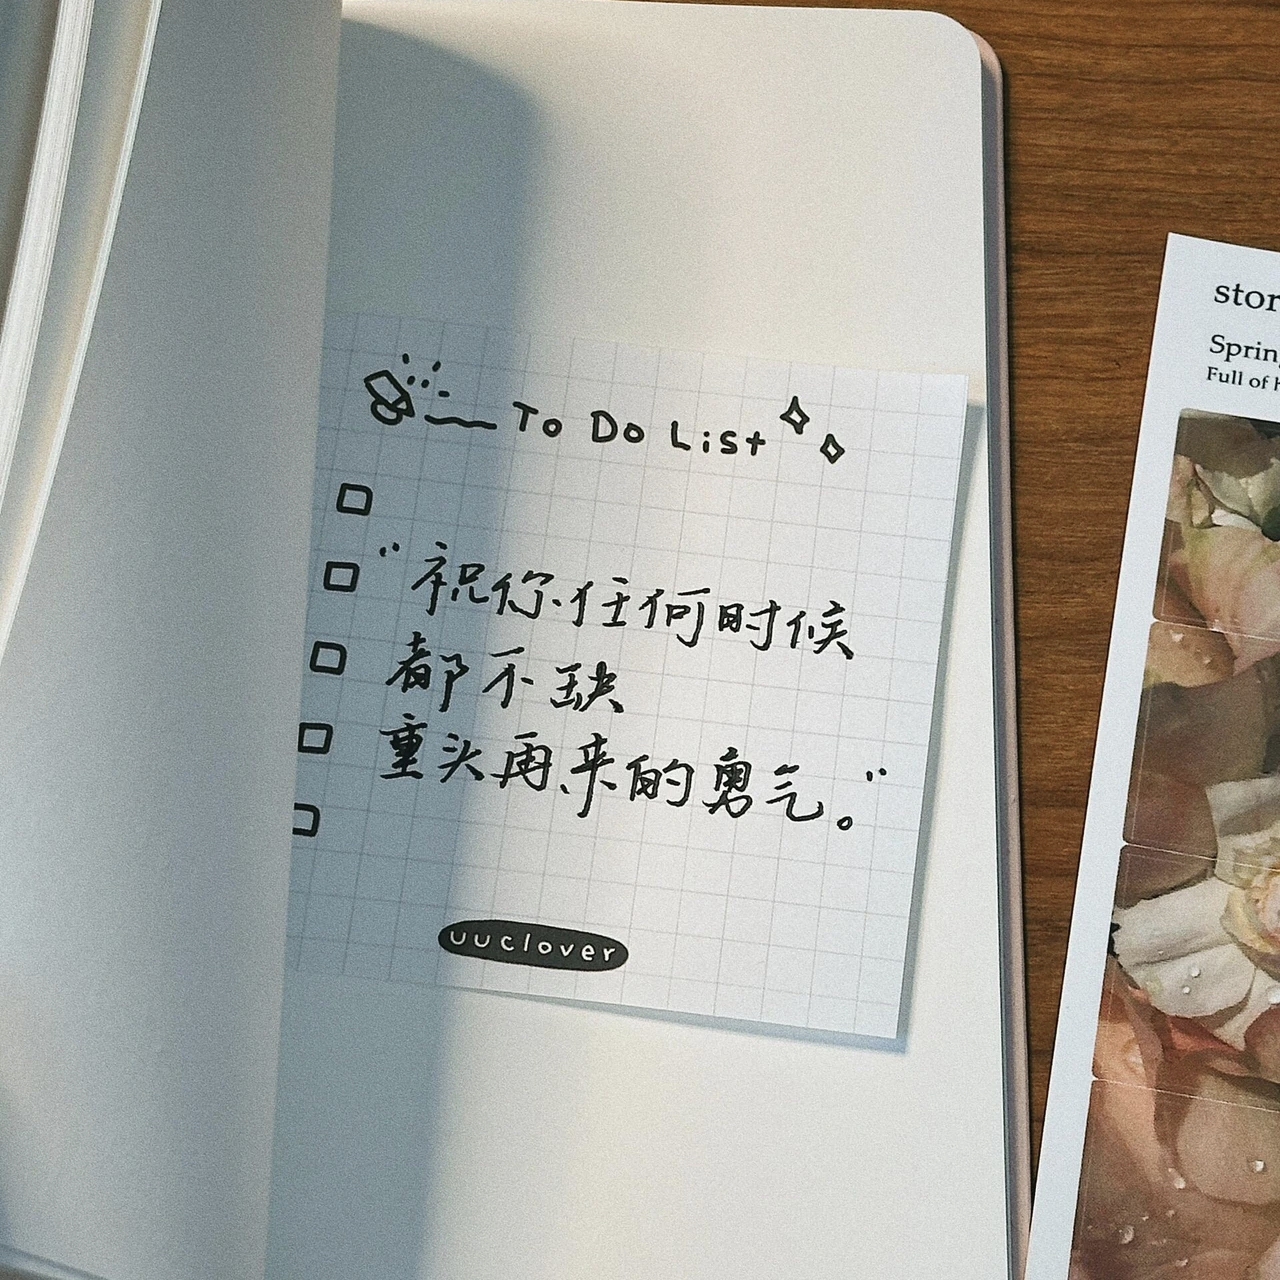 To Do List
"祝你任何时候
都不缺
重头再来的勇气。"
uuclover
Full of